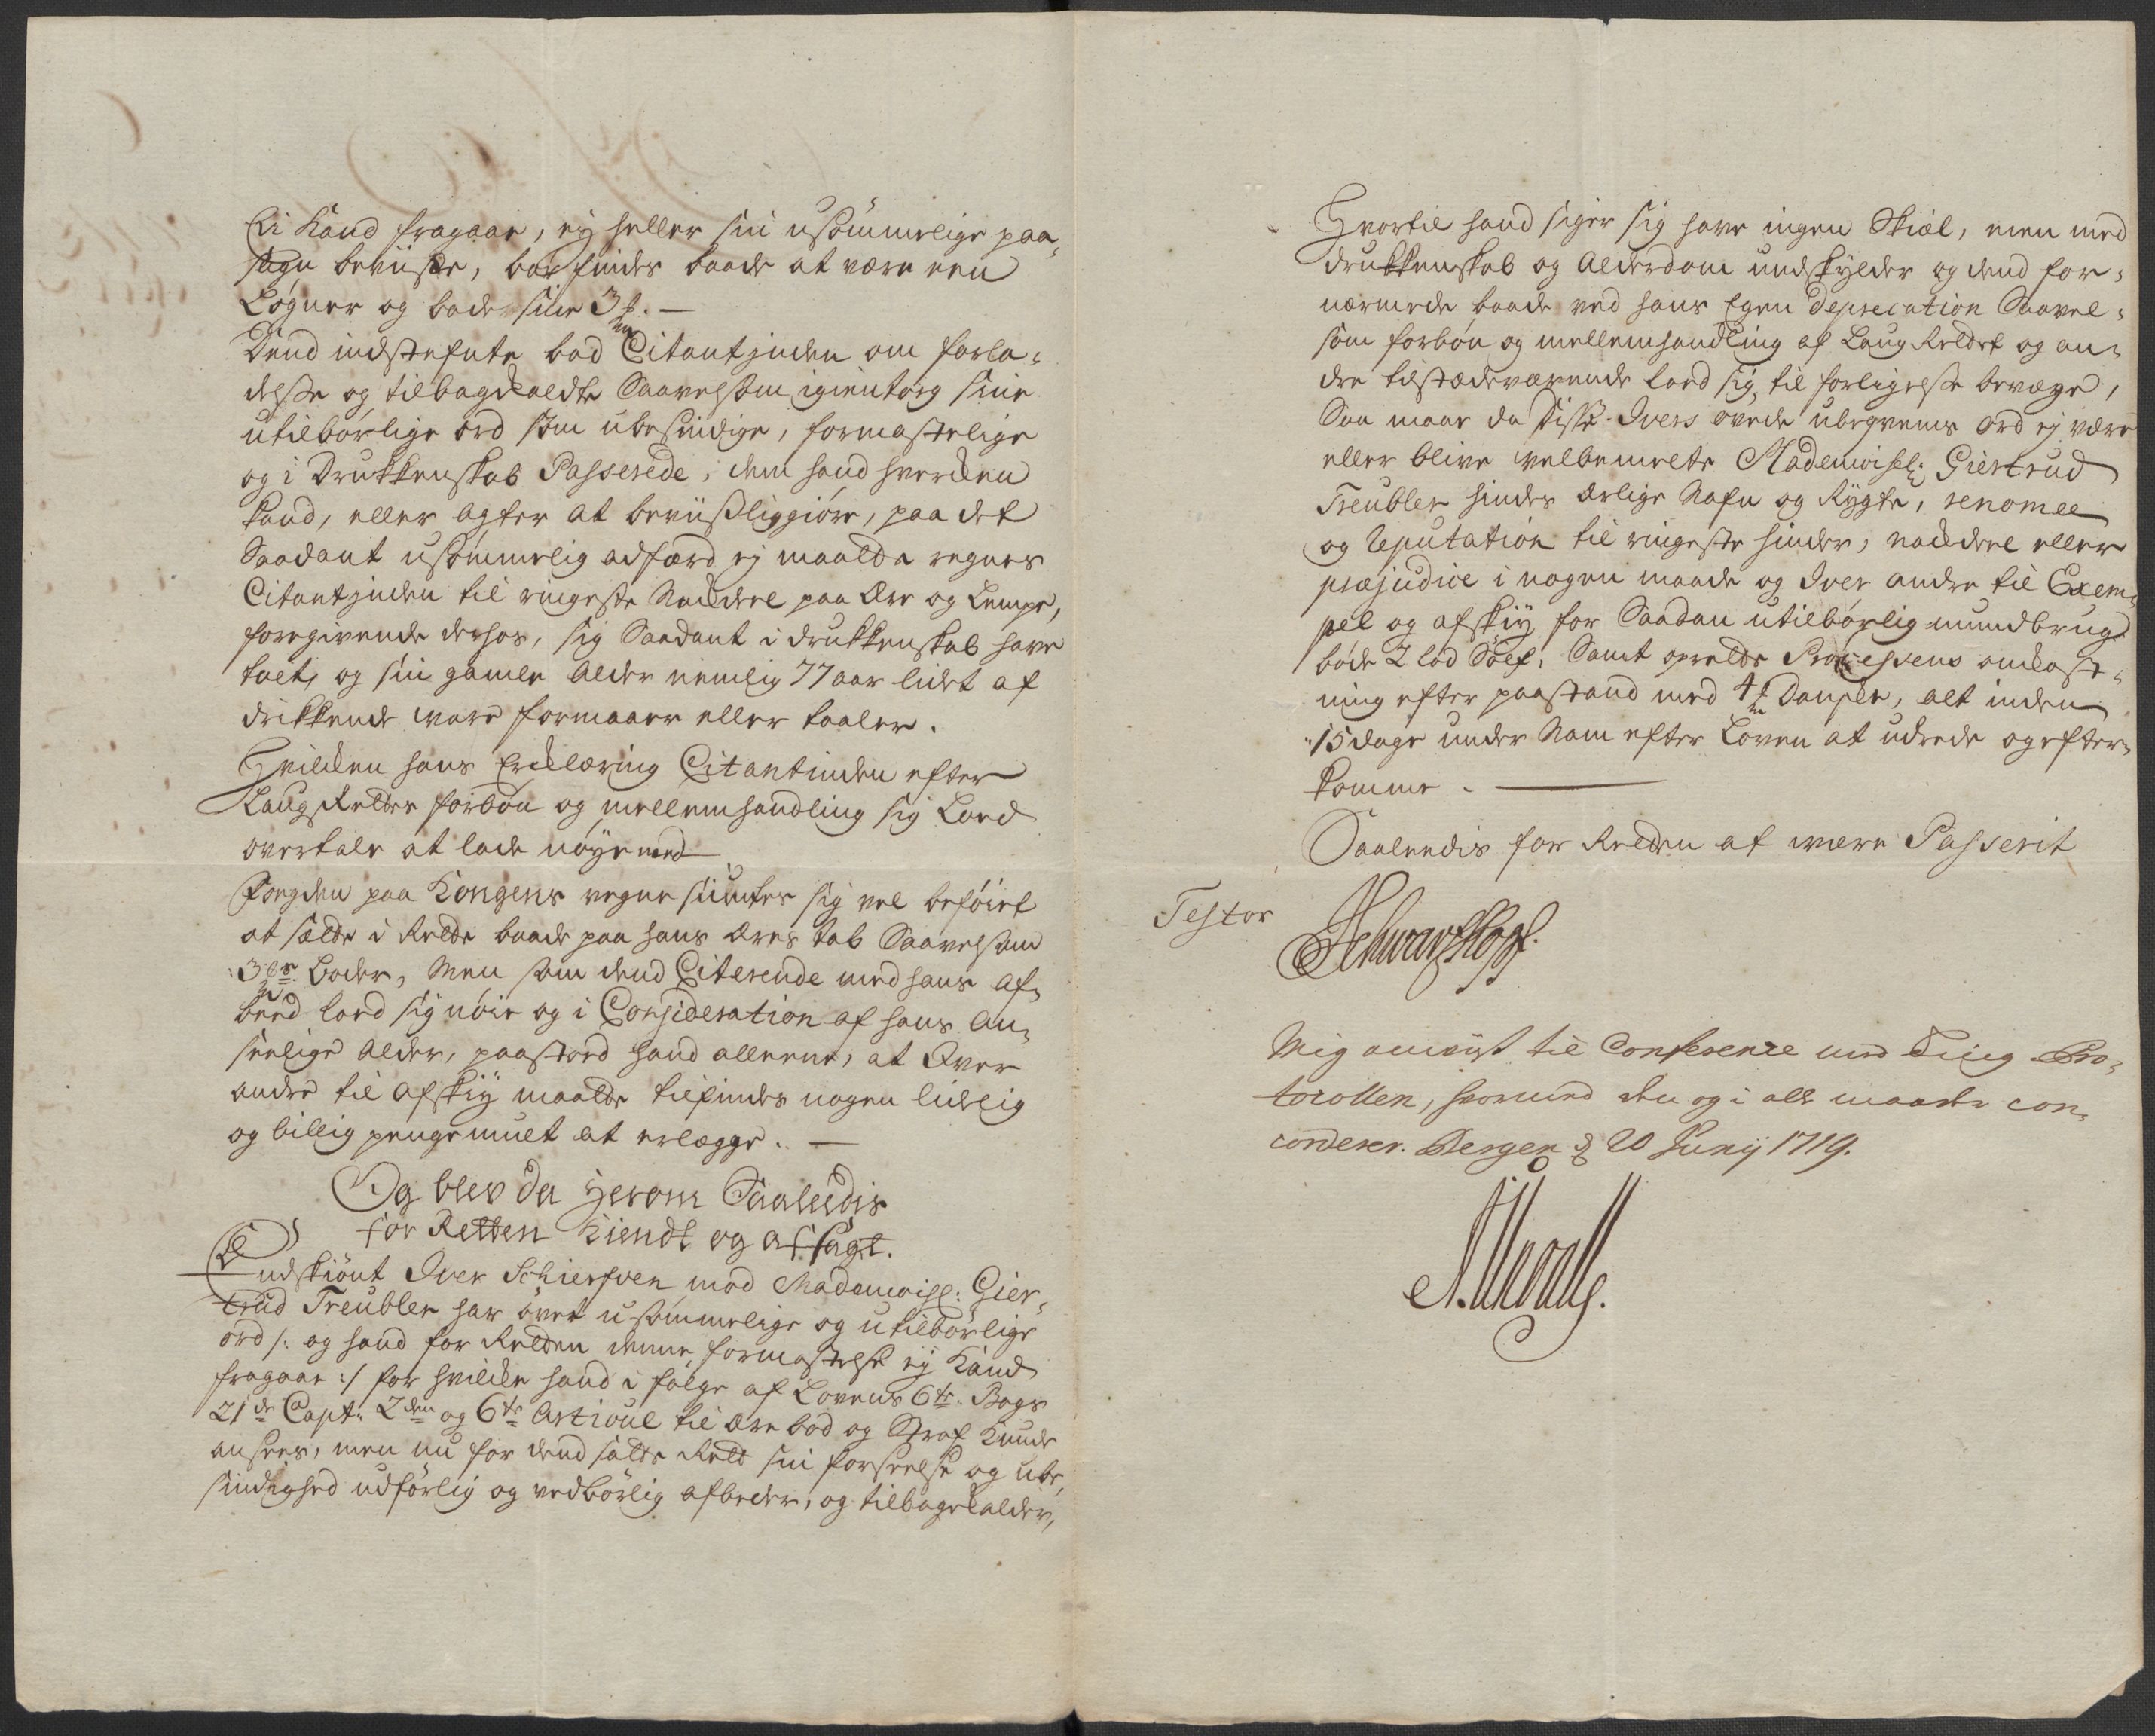 Ei Kand fragaae, ej heller sin usömmelige paa-
sagn beviise, bør findes baade at være een
Løgner og bøde sine 3
Dend indstefnte bad Citantinden om forla-
delse og tilbagekaldte Saavelsom igientog sine
utilbørlige ord som ubesindige, formastelige
og i Drukkenskab Passerede, dem hand hverken
kand, eller agter at beviisliggiøre, paa det
Saadant usömmelig adfærd ej maatte regnes
Citantinden til ringeste Nackdeel paa Ære og Lempe,
foregivende derhos, sig Saadant i drukkenskab have
talt, og sin gamle Alder nemlig 77 aar lidet af
drikkende vare formaaer eller taaler.
Hvilken hans Erklæring Citantinden efter
Laug Rettes forbøn og mellemhandling sig Loed
overtale at lade nøye med
Fogden paa Kongens vegne siuntes sig vel beføiet
at sætte i Rette baade paa hans Æres tab Saavelsom
3 Bøder, Men som dend Citerende med hans af-
beed loed sig nöie og i Consideration af hans An-
seelige Alder, paastoed hand alleene, at Iver
andre til afskÿ maatte tilfindes nogen liidelig
og billig penge mult at erlægge. —
Og blev da herom Saaledis
for Retten Kiendt og afsagt.
Endskiönt Iver Schierfven mod Mademoisl: Gier-
trud Treubler har övet usömmelige og utilbörlige
ord /: og hand for Retten denne formastelse ej Kand
fragaae :/ for hvilke hand i følge af Lovens 6te Bogs
21de Capt: 2den og 6te Articul til ære bod og Straf Kunde
ansees, men nu for dend satte Rett sin forseelse og ube-
sindighed udförlig og vedbörlig afbeder, og tilbagekalder,
Hvortil hand siger sig have ingen Skiæl, men med
drukkenskab og Alderdom undskylder og dend for-
nærmede baade ved hans Egen deprecation Saavel-
som forbön og mellemhandling af Laug Rettet og an-
dre tilstædeværende loed sig til forligelse bevæge,
Saa maae da diße Ivers övede ubeqvems ord ej være
eller blive velbemelte Mademoisl: Giertrud
Treubler hindes ærlige Nafn og Rygte, renomee
og Reputation til ringeste hinder, nackdeel eller
præjudice i nogen maade og Iver andre til Exem-
pel og afskÿ for Saadan utilbörlig mundbrug
böde 2 lod Sölf, Samt oprette Processens omkost-
ning efter paastand med 4 Danske, alt inden
15 dage under Nam efter Loven at udrede og efter-
komme.
Saaleedis for Retten at være Passerit
Testor
Schwartzkopf.
Mig anviist til Conference med Ting Pro-
tocollen, hvormed den og i all maade con-
corderer. Bergen d 20 Junij 1719.